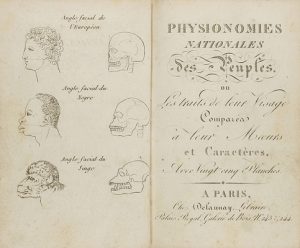 Angle facial de
l'Européen
Angle facial du
Nègre
Angle facial du
Singe
PHYSIONOMIES
NATIONALES
des Peuples,
OU
Les traits de leur Visage
Comparés
à leur Mœurs
et Caractères,
Avec Vingt cinq Planches.
A PARIS,
Chez Delaunay, Libraire,
Palais Royal, Galerie de Bois, N.